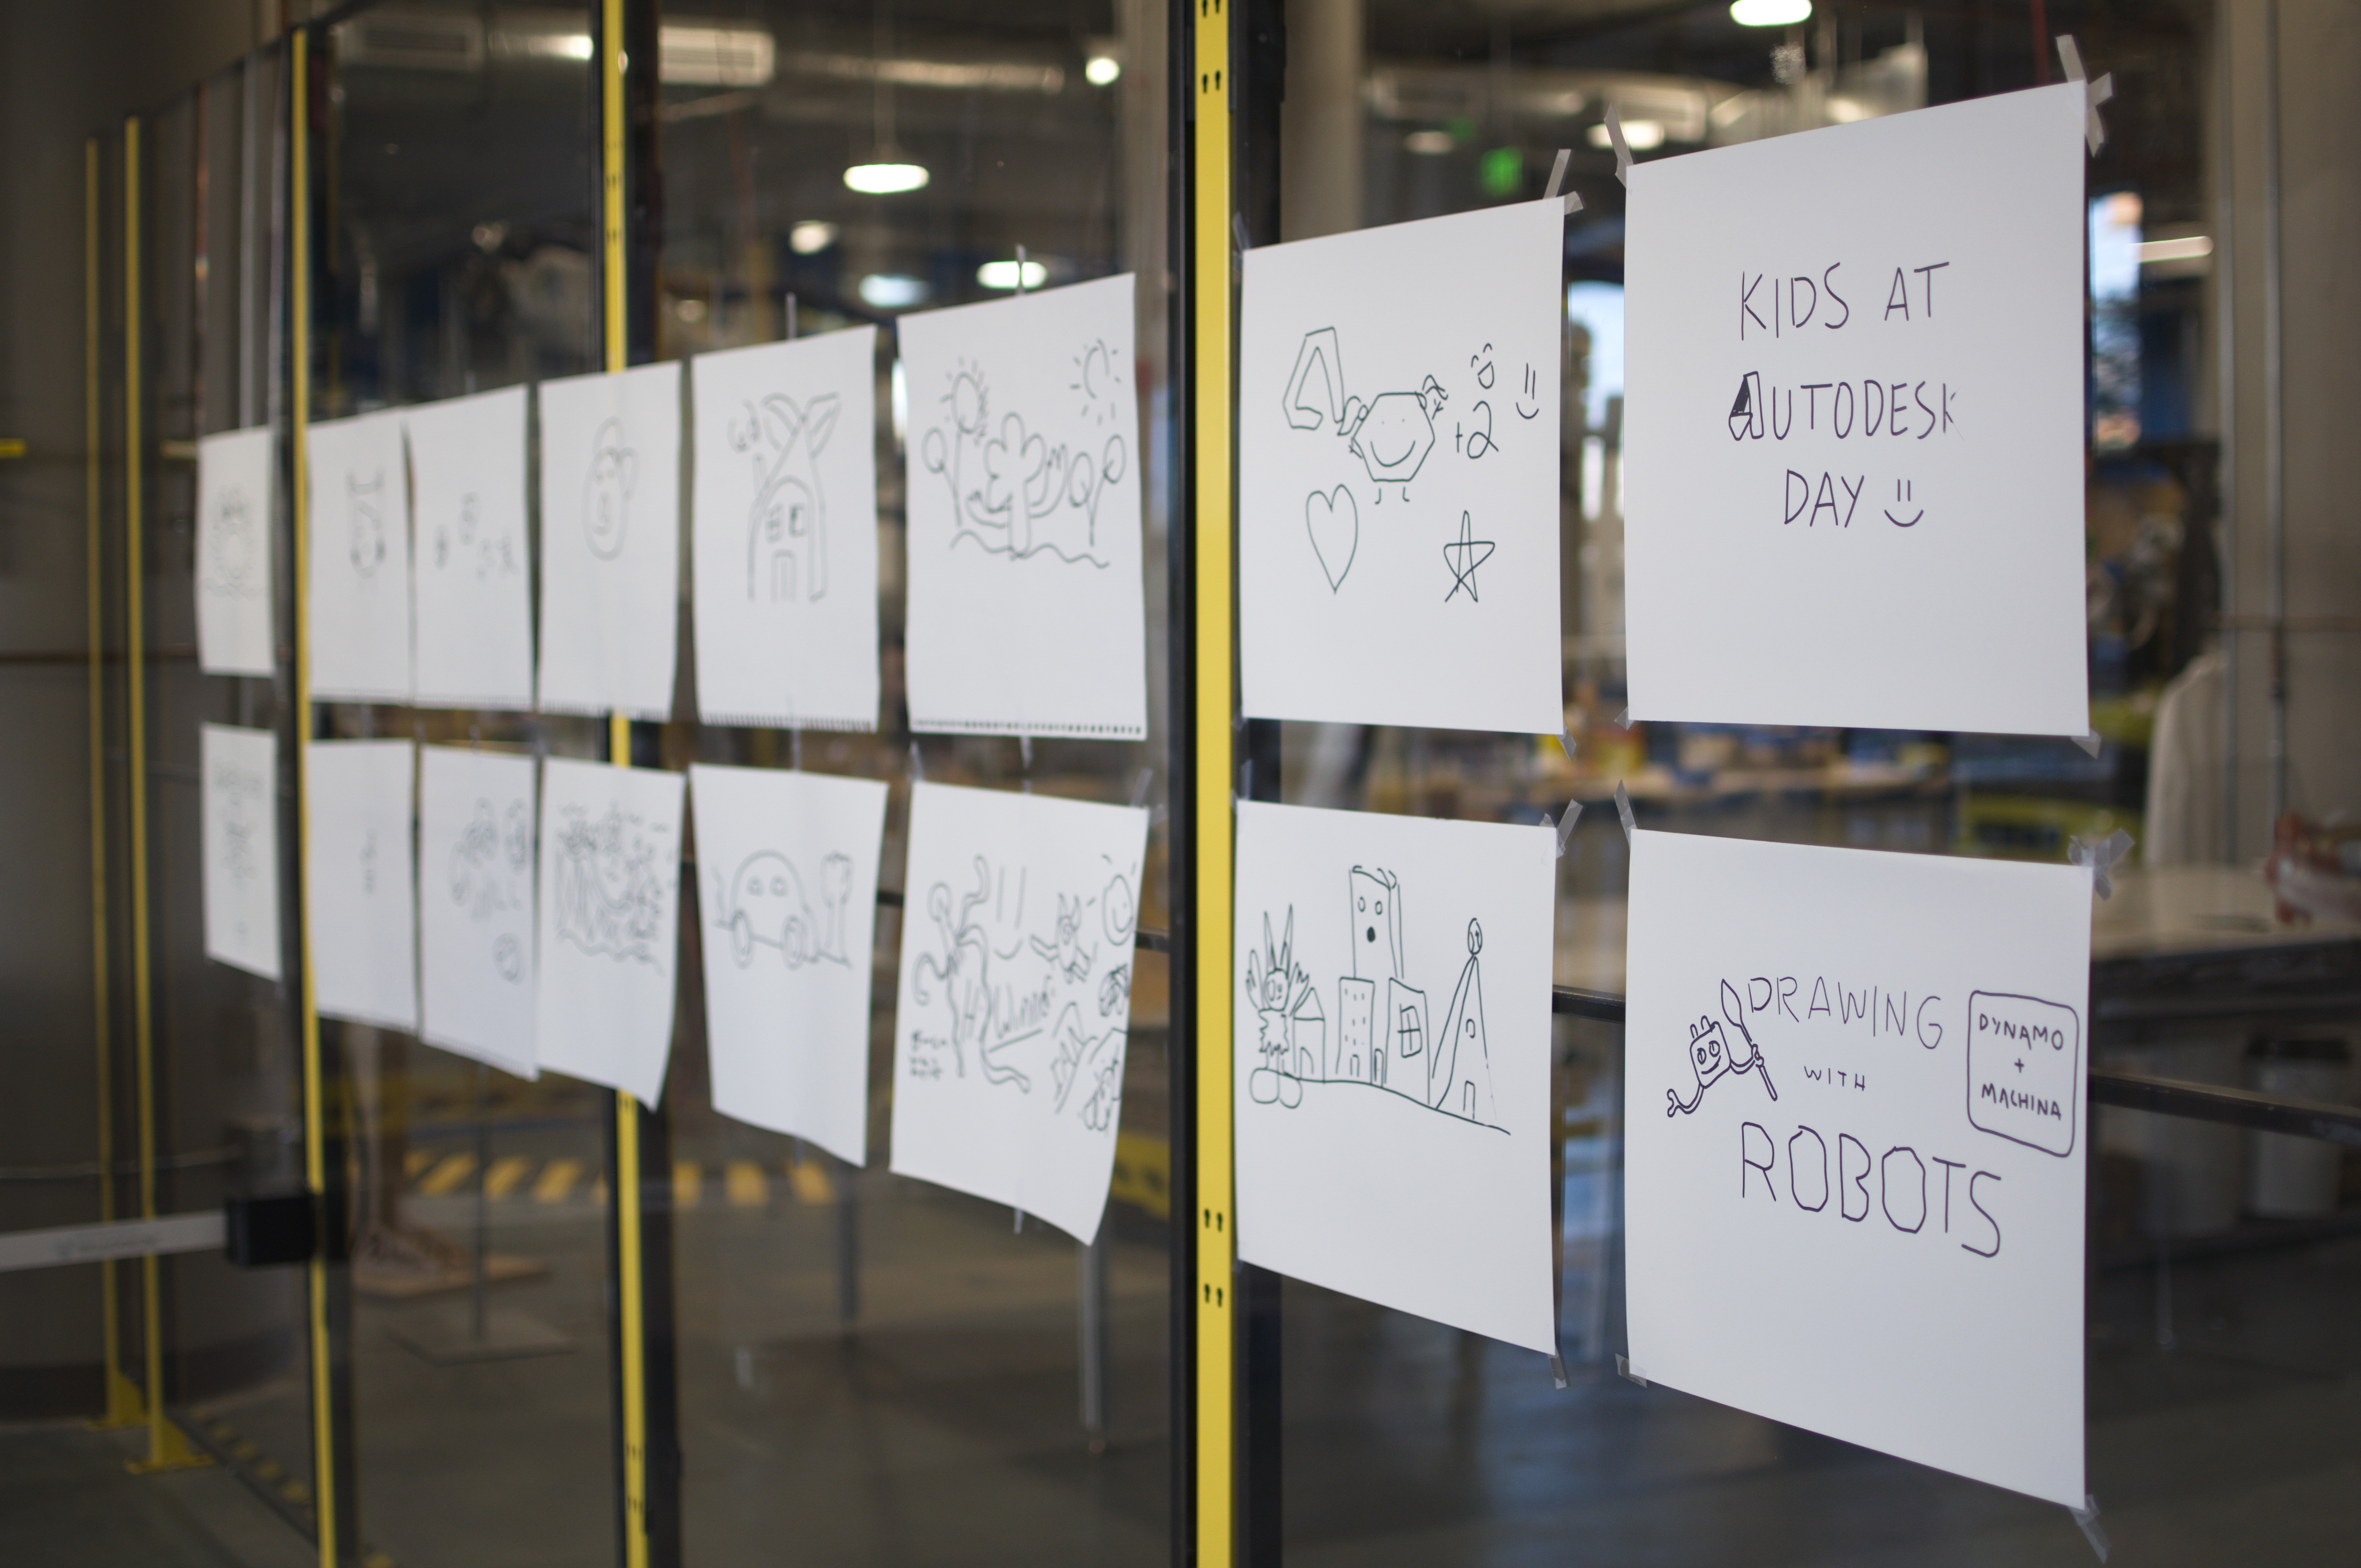 KIDS AT
AUTODESK
DAY
+2
DRAWING
WITH
ROBOTS
DYNAMO
+
MACHINA